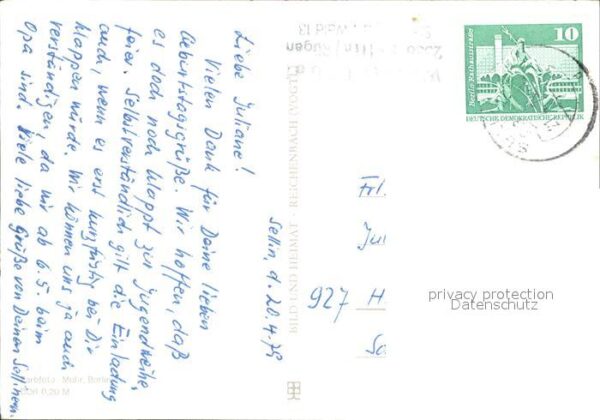 Sellin, d. 20.4.79
Liebe Juliane!
Vielen Dank für Deine lieben
Geburtstagsgrüße. Wir hoffen, daß
es doch noch klappt zur Jugendweihe,
feier. Selbstverständlich gilt die Einladung
auch, wenn es erst kurzfristig bei Dir
klappen würde. Wir können uns ja auch
verständigen, da wir ab 6.5. beim
Opa sind. Viele liebe Grüße von Deinen Sellinern.
Frl.
Jul
927 H
BILD UND HEIMAT · REICHENBACH
10
Berlin · Rathausstraße
DEUTSCHE DEMOKRATISCHE REPUBLIK
privacy protection
Datenschutz